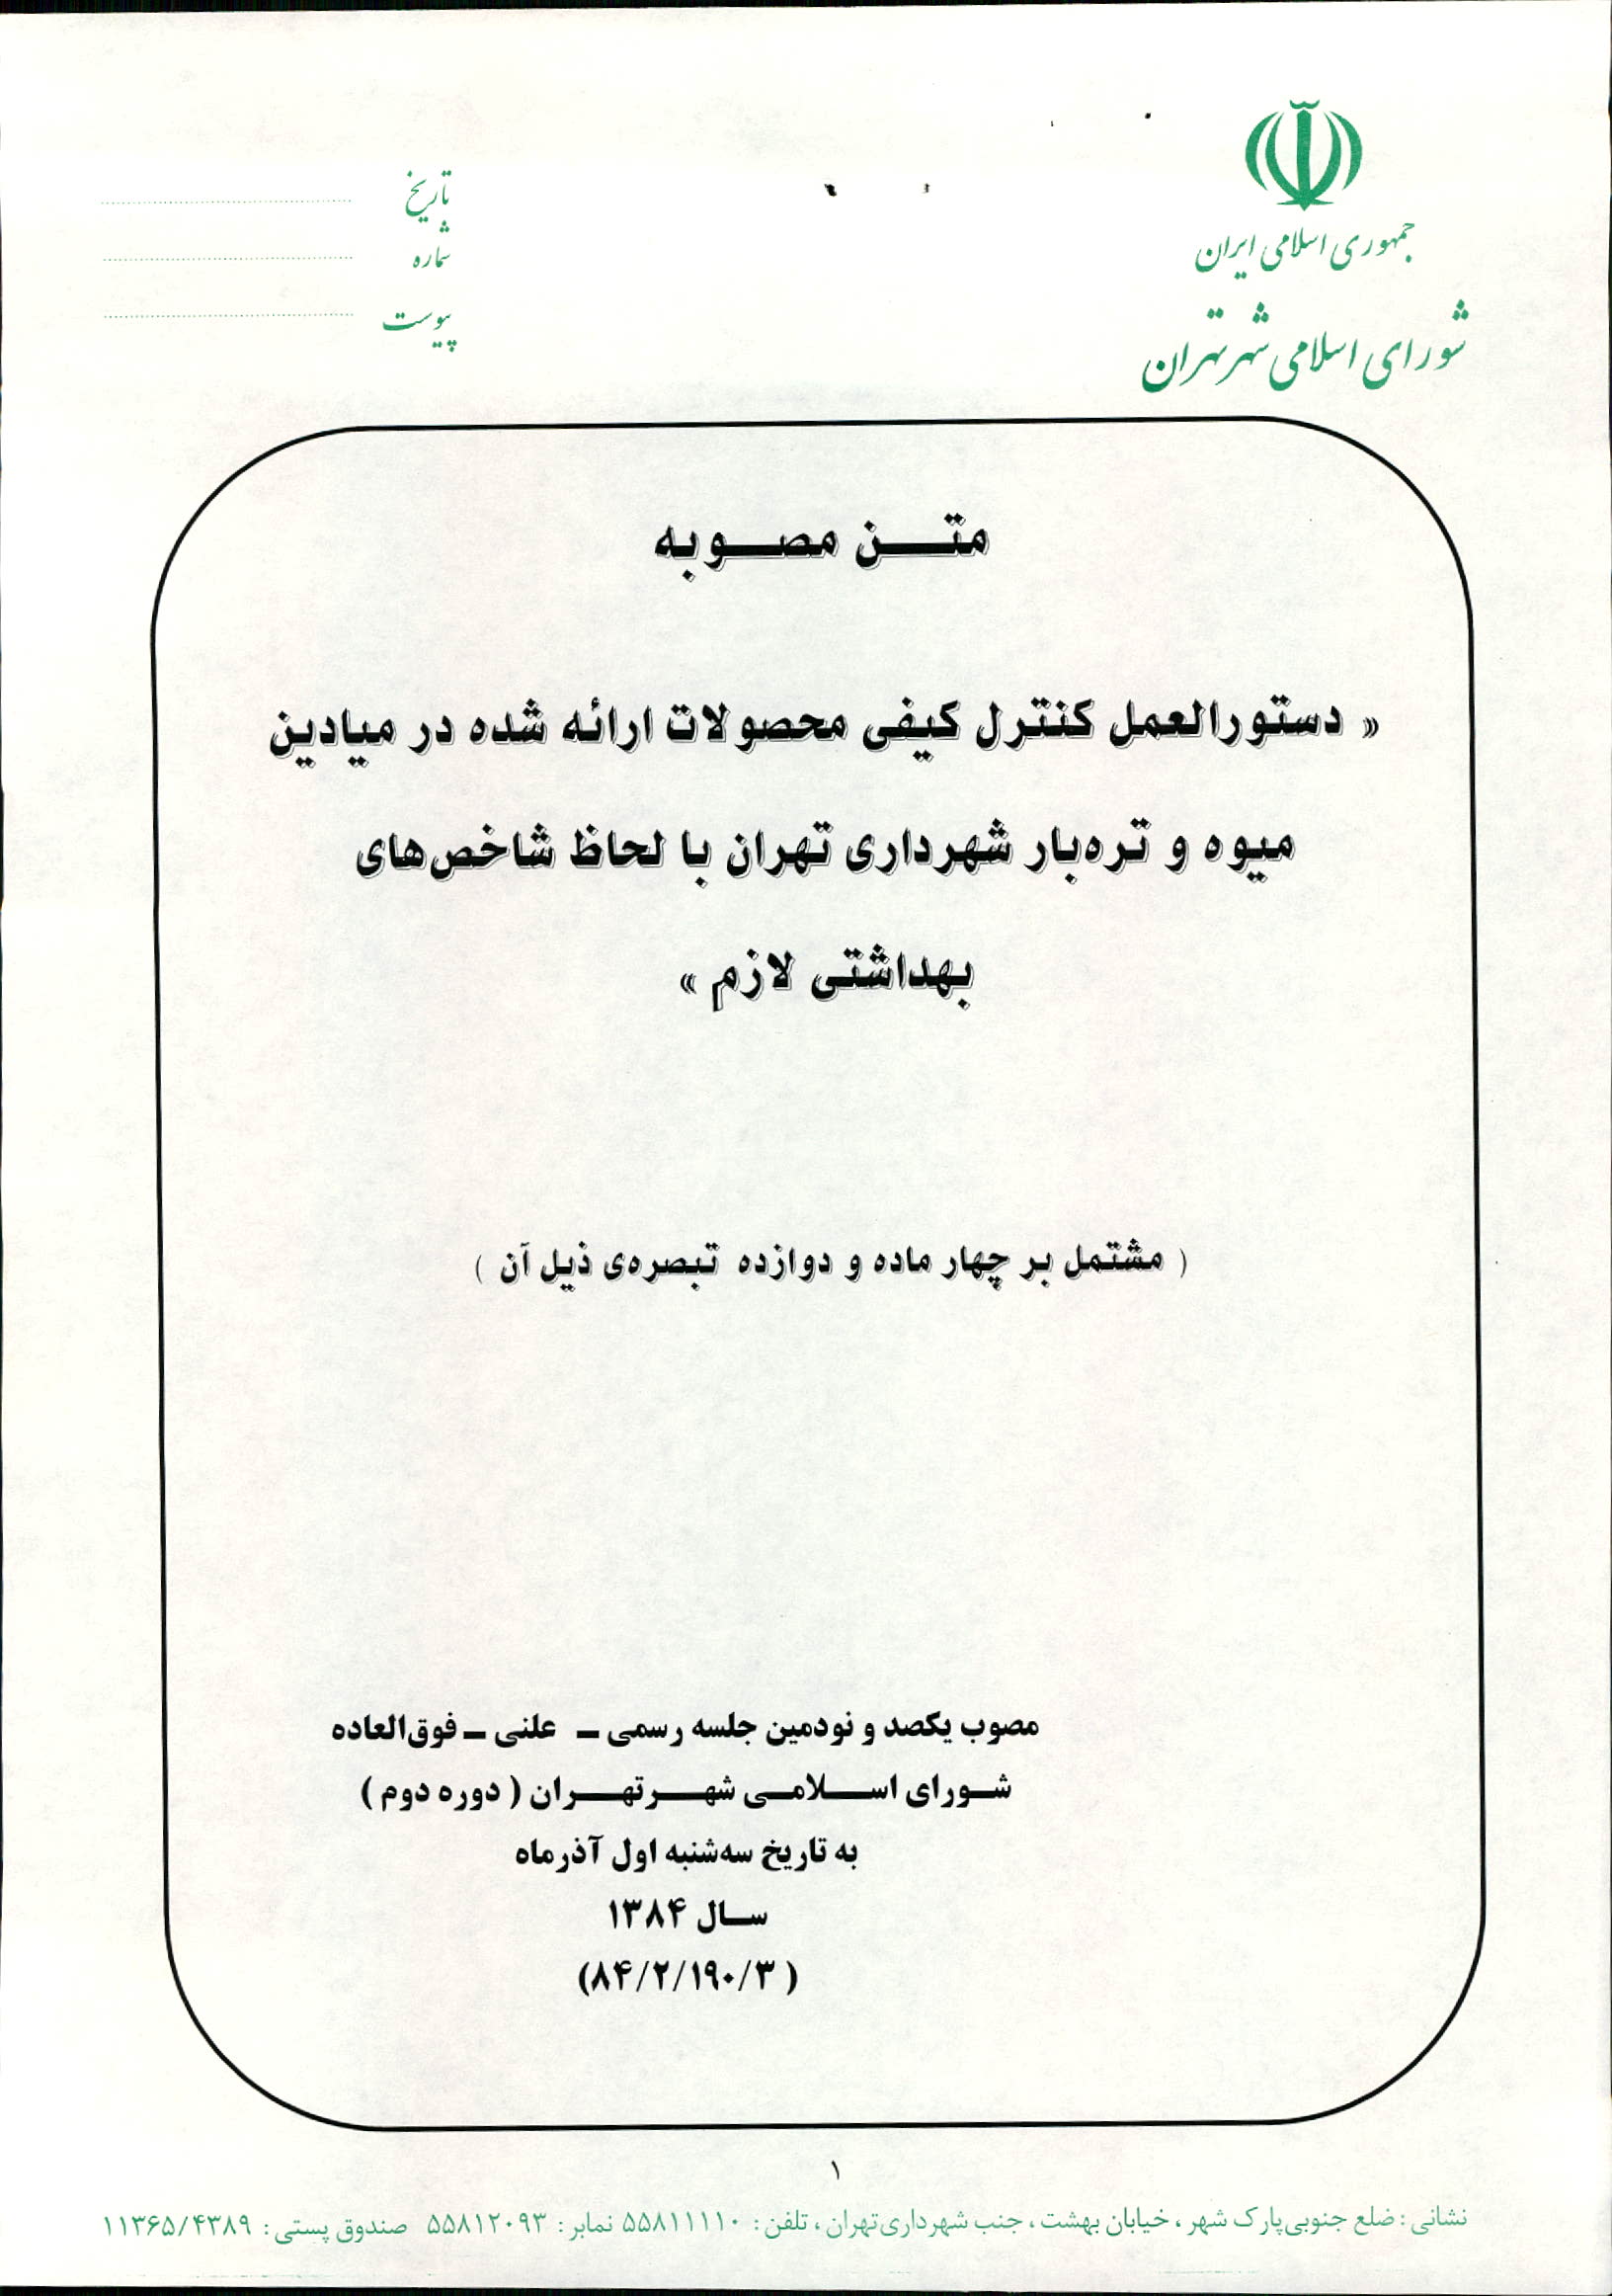 جمهوری اسلامی ایران
شورای اسلامی شهر تهران
تاریخ
شماره
پیوست
متن مصوبه
« دستورالعمل کنترل کیفی محصولات ارائه شده در میادین
میوه و تره‌بار شهرداری تهران با لحاظ شاخص‌های
بهداشتی لازم »
( مشتمل بر چهار ماده و دوازده تبصره‌ی ذیل آن )
مصوب یکصد و نودمین جلسه رسمی – علنی – فوق‌العاده
شورای اسلامی شهر تهران ( دوره دوم )
به تاریخ سه‌شنبه اول آذر ماه
سال ۱۳۸۴
(۸۴/۲/۱۹۰/۳ )
۱
نشانی : ضلع جنوبی پارک شهر ، خیابان بهشت ، جنب شهرداری تهران ، تلفن : ۵۵۸۱۱۱۱۰ نمابر : ۵۵۸۱۲۰۹۳ صندوق پستی : ۱۱۳۶۵/۴۳۸۹